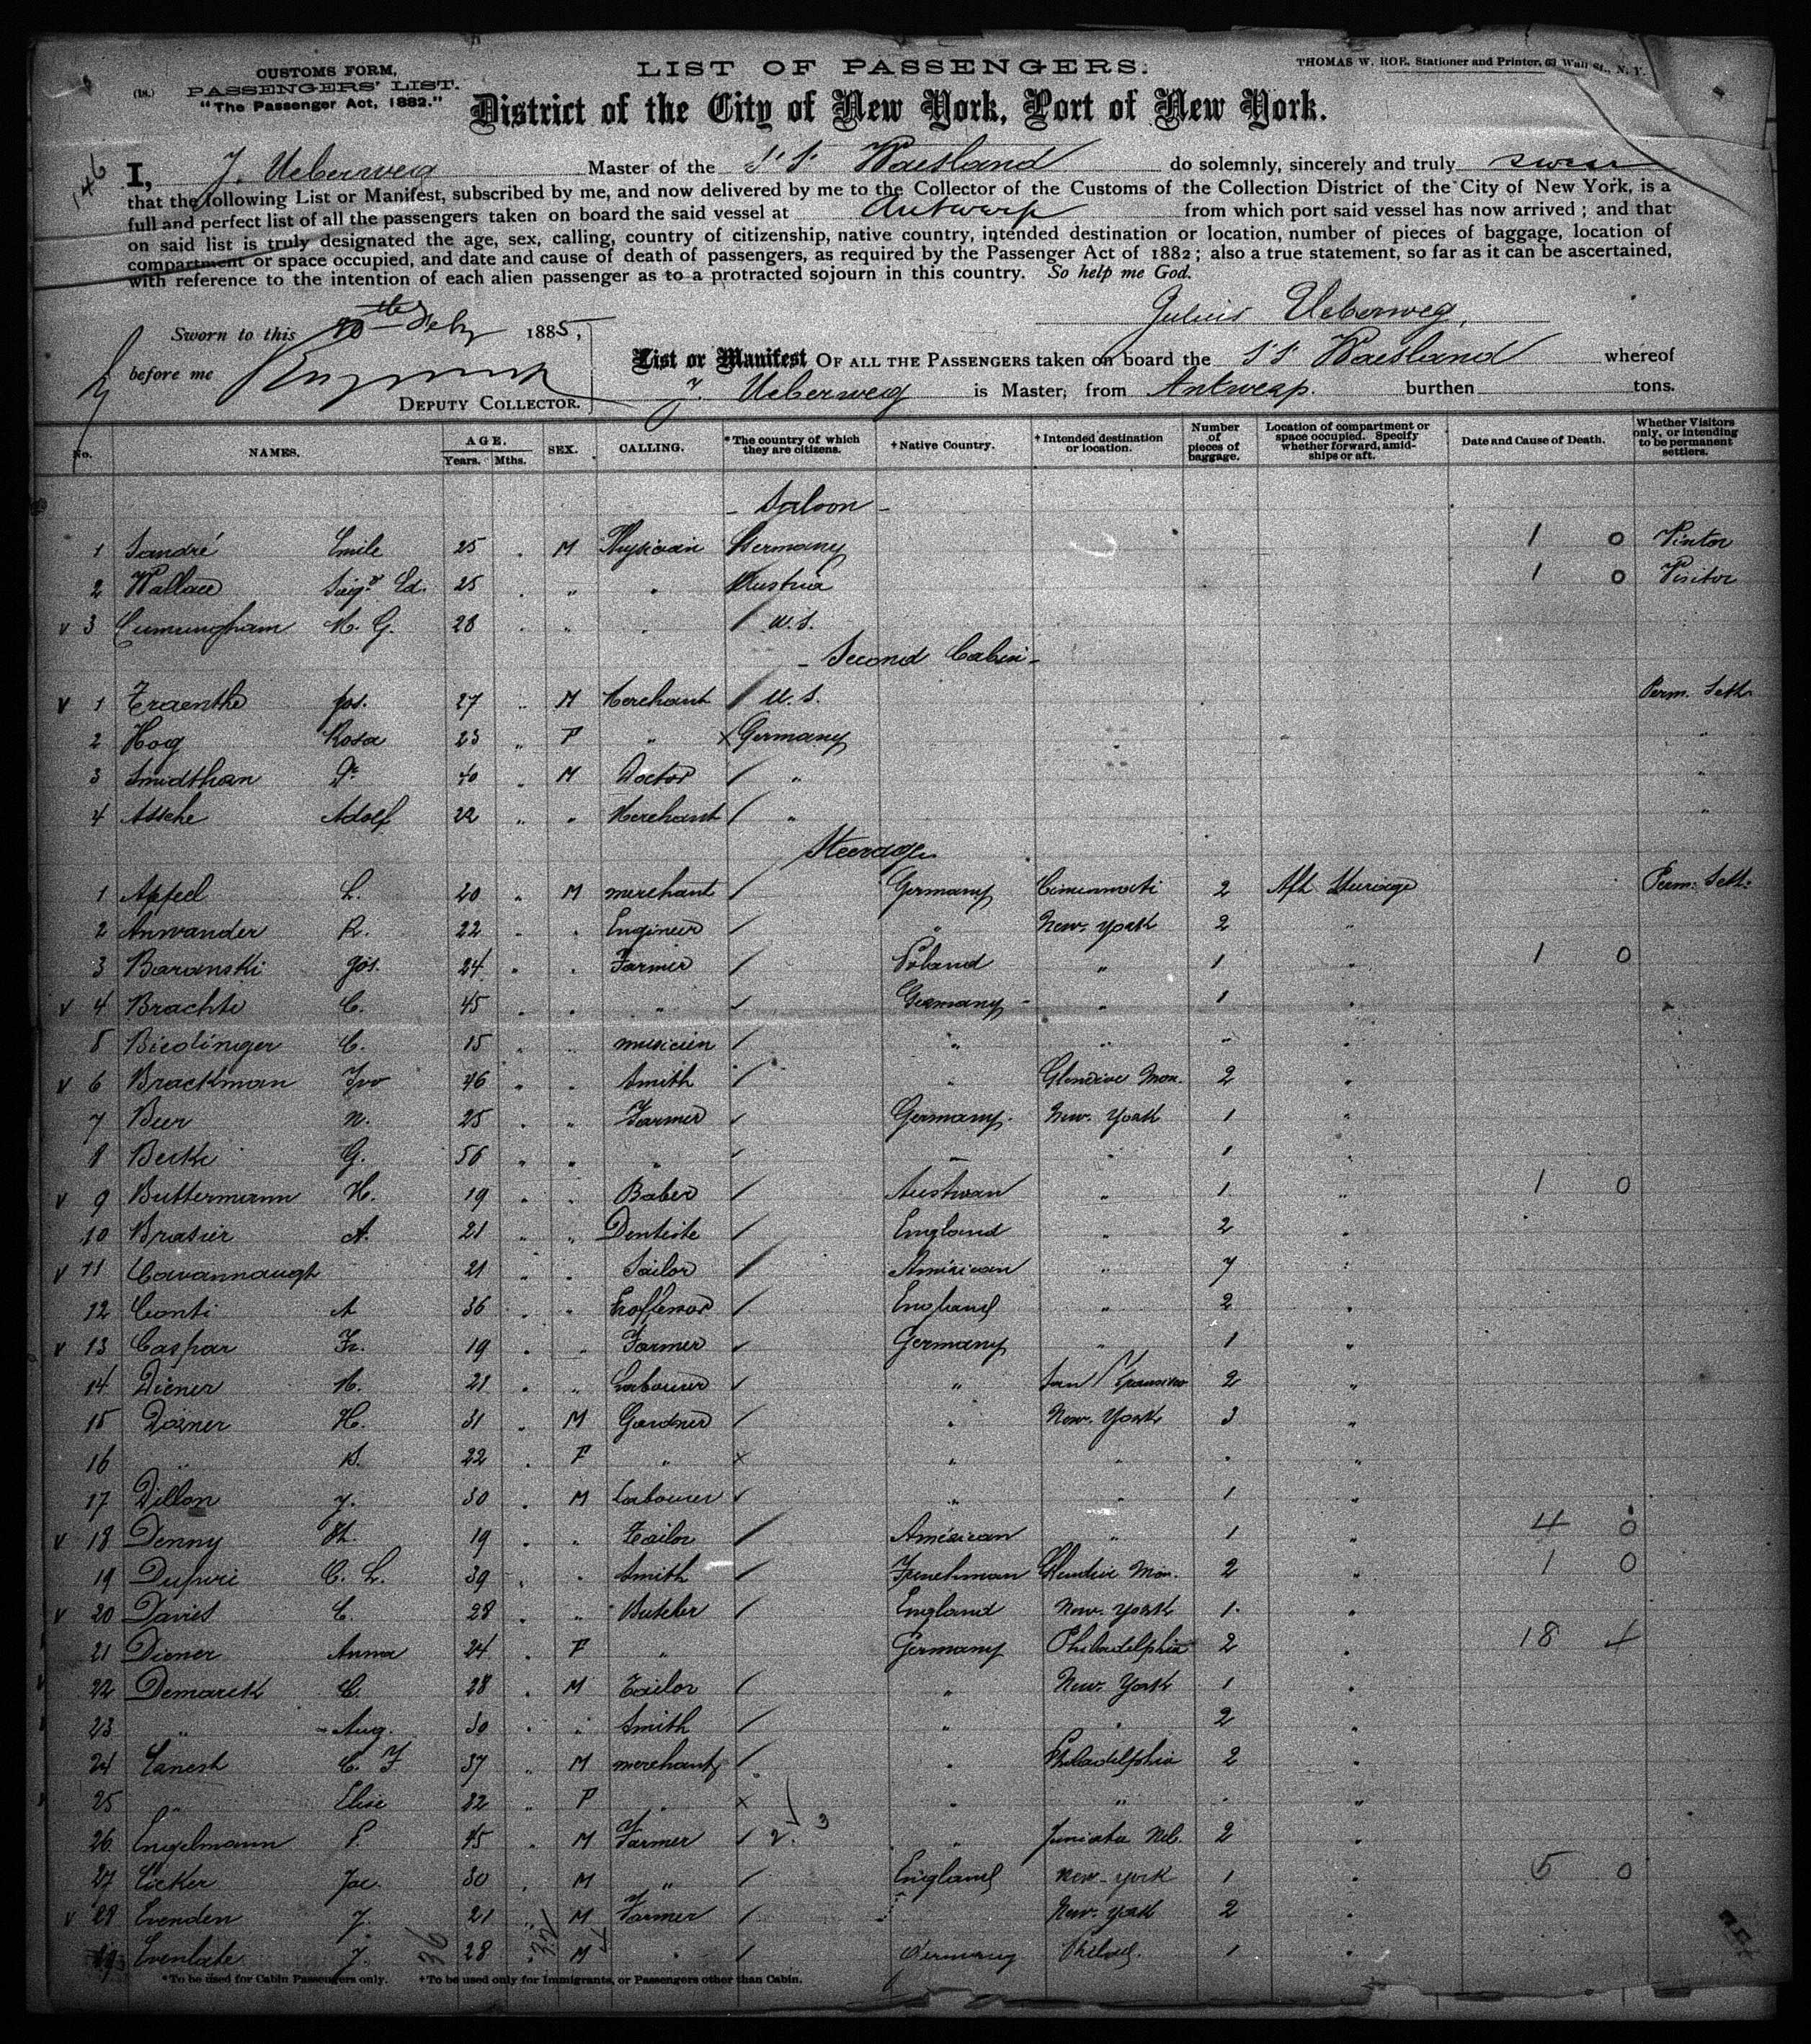 CUSTOMS FORM,
(18.) PASSENGERS' LIST.
"The Passenger Act, 1882."
LIST OF PASSENGERS.
THOMAS W. ROE, Stationer and Printer, 63 Wall St., N. Y.
District of the City of New York, Port of New York.
146
I, J. Ueberweg Master of the S.S. Waesland do solemnly, sincerely and truly swear
that the following List or Manifest, subscribed by me, and now delivered by me to the Collector of the Customs of the Collection District of the City of New York, is a
full and perfect list of all the passengers taken on board the said vessel at Antwerp from which port said vessel has now arrived ; and that
on said list is truly designated the age, sex, calling, country of citizenship, native country, intended destination or location, number of pieces of baggage, location of
compartment or space occupied, and date and cause of death of passengers, as required by the Passenger Act of 1882 ; also a true statement, so far as it can be ascertained,
with reference to the intention of each alien passenger as to a protracted sojourn in this country. So help me God.
Julius Ueberweg,
Sworn to this 20th Feby 1885,
before me
DEPUTY COLLECTOR.
List or Manifest OF ALL THE PASSENGERS taken on board the S.S. Waesland whereof
J. Ueberweg is Master, from Antwerp. burthen tons.
No. NAMES. AGE. Years. Mths. SEX. CALLING. *The country of which they are citizens. †Native Country. †Intended destination or location. Number of pieces of baggage. Location of compartment or space occupied. Specify whether forward, amidships or aft. Date and Cause of Death. Whether Visitors only, or intending to be permanent settlers.
- Saloon -
1 Sandré Emile 25 M Physician Germany 1 0 Visitor
2 Wallace Ed. 25 " " Austria 1 0 Visitor
v 3 Cumungham M. G. 28 " " U.S.
- Second Cabin -
v 1 Traenthe Jos. 27 " M Merchant U.S. Perm. Sett.
2 Hog Rosa 23 " F " Germany "
3 Smidthan Dr 40 " M Doctor " "
4 Assche Adolf 22 " " Merchant " "
Steerage
1 Appel L. 20 " M merchant Germany Cincinnati 2 Aft Steerage Perm. Sett.
2 Anwander R. 22 " " Engineer " New York 2 "
3 Baranski Jos. 24 " " Farmer Poland " 1 " 1 0
v 4 Brachte C. 45 " " " Germany " 1 "
5 Biedinger C. 15 " " musicien " " " "
v 6 Brackman Ivo 46 " " Smith " Glendive Mon. 2 "
7 Beer N. 25 " " Farmer Germany New York 1 "
8 Berke G. 56 " " " " " 1 "
v 9 Buttermann H. 19 " " Baber Austrian " 1 " 1 0
10 Brasier A. 21 " " Dentiste England " 2 "
v 11 Cavannaugh 21 " " Sailor American " 7 "
12 Conti A 36 " " Proffessor England " 2 "
v 13 Caspar Fr. 19 " " Farmer Germany " 1 "
14 Diener M. 21 " " Labourer " San Francisco 2 "
15 Doiner H. 31 " M Gardner " New York 3 "
16 " B. 22 " F " x " " " "
17 Dillon J. 30 " M Labourer " " 1 "
v 18 Denny 19 " " Tailor American " 1 " 4 0
19 C. L. 39 " " Smith Frenchman Glendive Mon. 2 " 1 0
v 20 Davies C. 28 " " Butcher England New York 1 "
21 Diener Anna 24 " F " Germany Philadelphia 2 " 18 4
22 Demarck C. 28 " M Tailor " New York 1 "
23 " Aug. 30 " " Smith " " 2 "
24 Earnest C. F 37 " M merchant " Philadelphia 2 "
25 " Elise 22 " F " x " " " "
26 Engelmann P. 45 " M Farmer " Juniata Neb. 2 "
27 Ecker Jac. 30 " M " England New York 1 " 5 0
v 28 Evenden J. 21 " M Farmer " New York 2 "
29 J. 28 " M " Germany Philad. 1 "
36
*To be used for Cabin Passengers only. †To be used only for Immigrants, or Passengers other than Cabin.